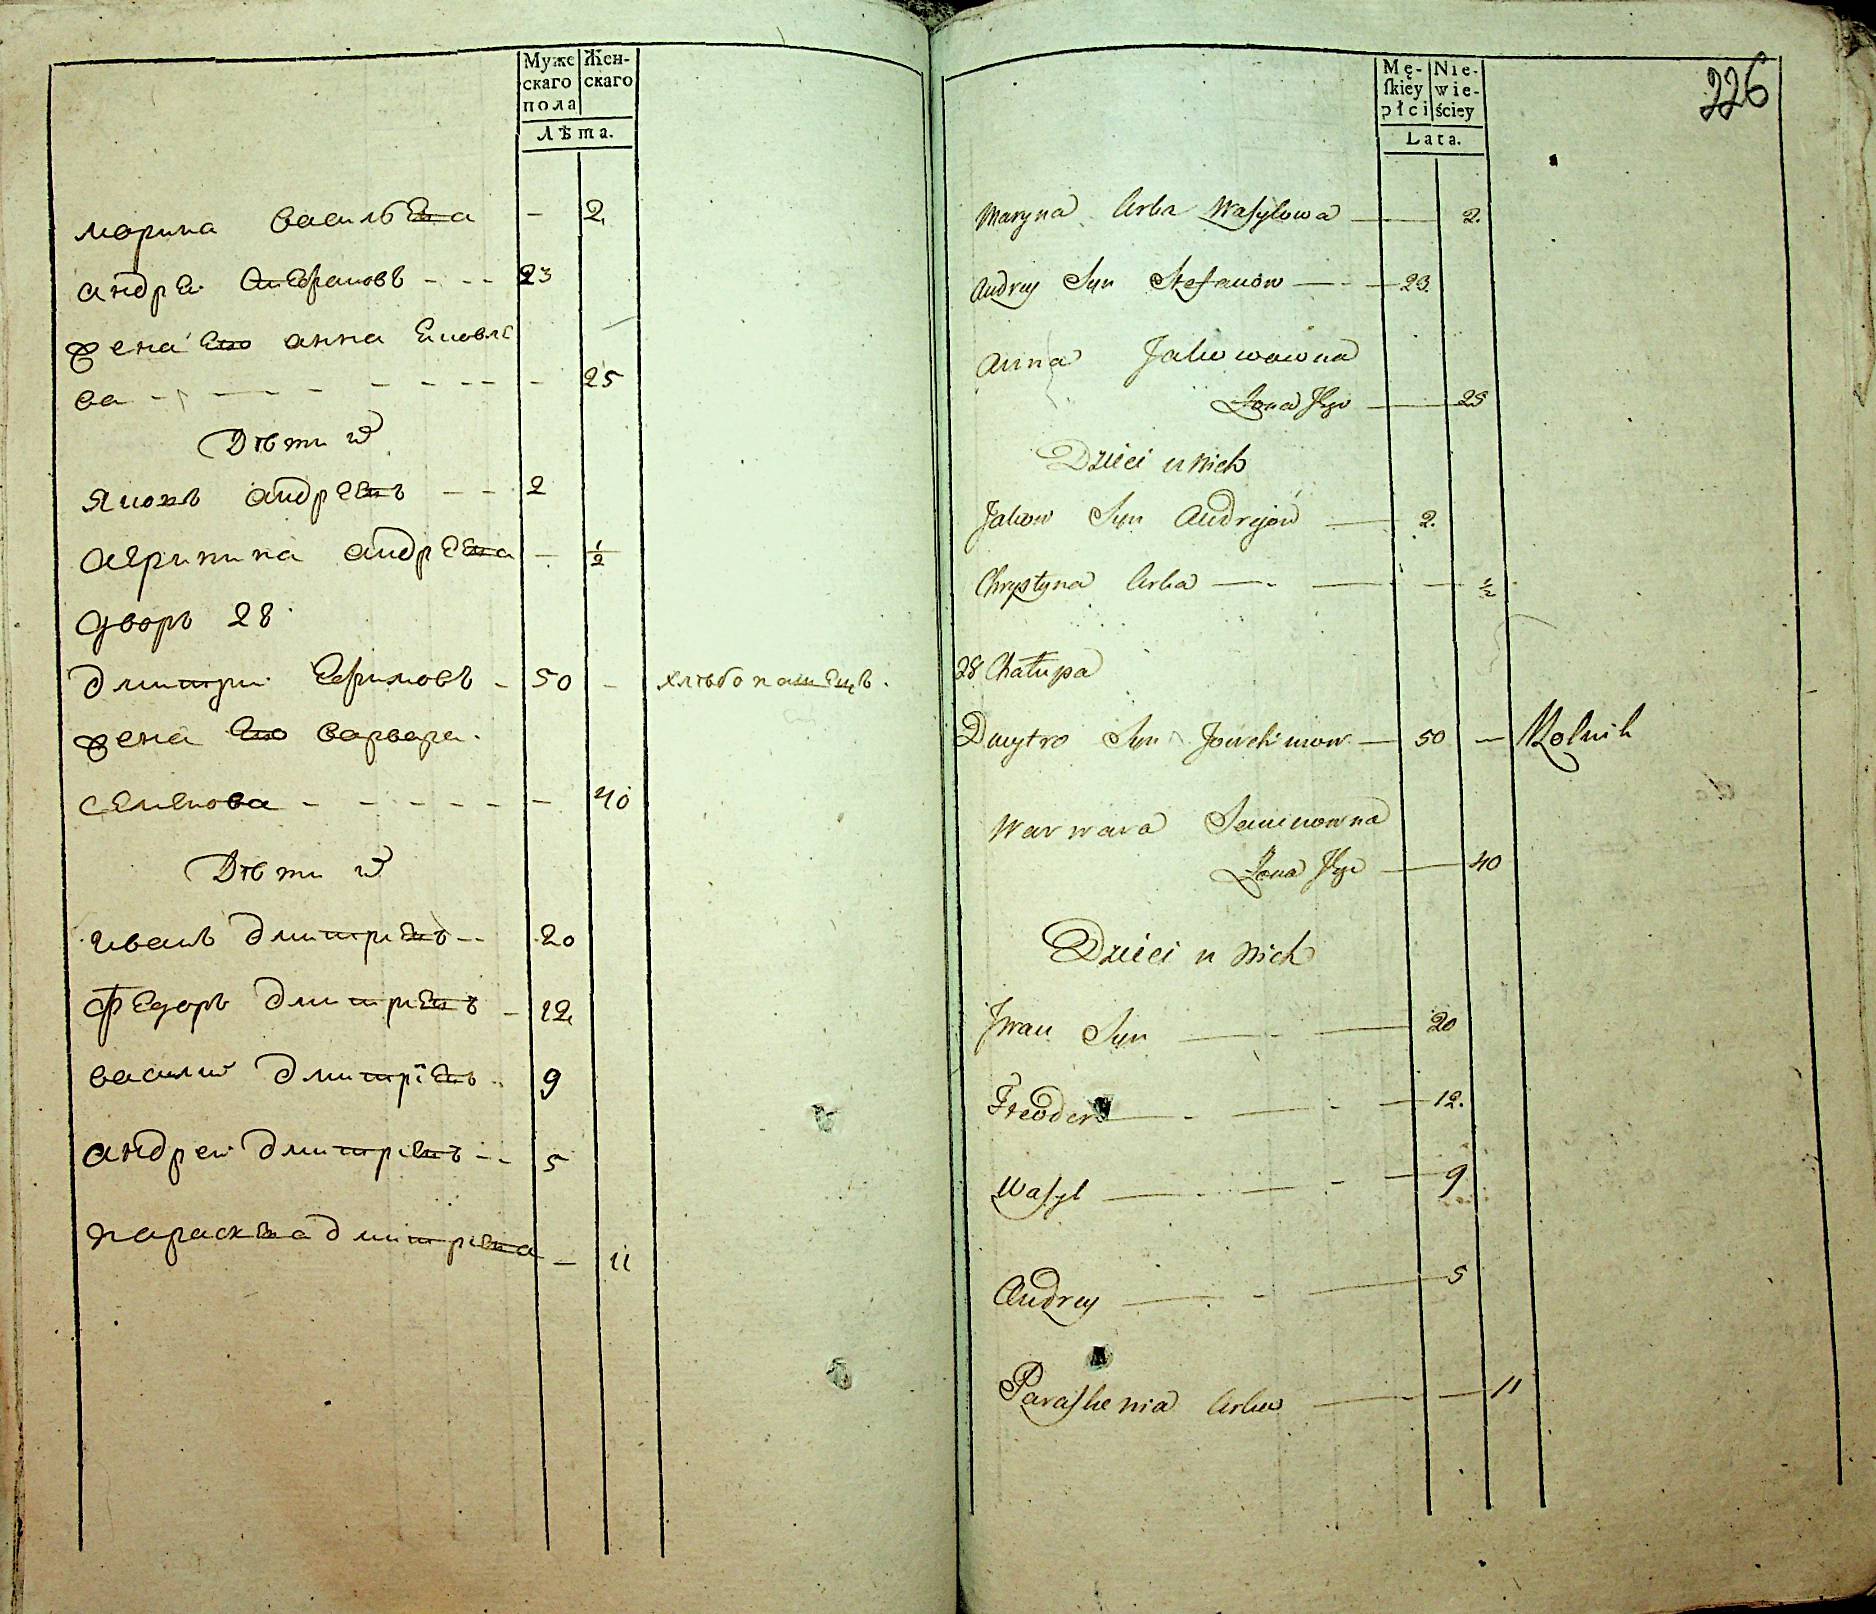 Муже
скаго
пола
Жен-
скаго
Лѣта.
марина василѣва - 2
андреи стефановъ - - - 23
жена его анна яковле
ва - - - - - - - - 25
Дѣти их
яковъ андреевъ - - 2
агрипина андреева - 1/2
дворъ 28
дмитри ефимовъ - 50 - хлѣбопашецъ.
жена его варвара
семенова - - - - - - 40
Дѣти их
иванъ дмитриевъ - - 20
федоръ дмитриевъ - 12
василий дмитрїевъ - 9
андреи дмитриевъ - - 5
параскева дмитриева - 11
226
Mę-
ſkiey
płci
Nie-
wie-
ściey
Lata.
Maryna Corka Waſylowa — 2.
Andrey Syn Stefanow — - — 23
Anna Jakowowna
Żona Jego — 25
Dzieci u Nich
Jakow Syn Andrejow — 2.
Chrystyna Corka — - — - — 1/2
28 Chałupa
Dmytro Syn — 50 — Rolnik
Warwara Semenowna
Żona Jego — 40
Dzieci u Nich
Jwan Syn — - — 20
Fteodor — - — - — 12.
Waſyl — - — - — 9
Andrey — - — 5
Paraſkewia Corka — - — 11